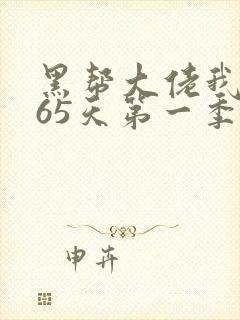 黑帮大佬我
65天第一季
申卉